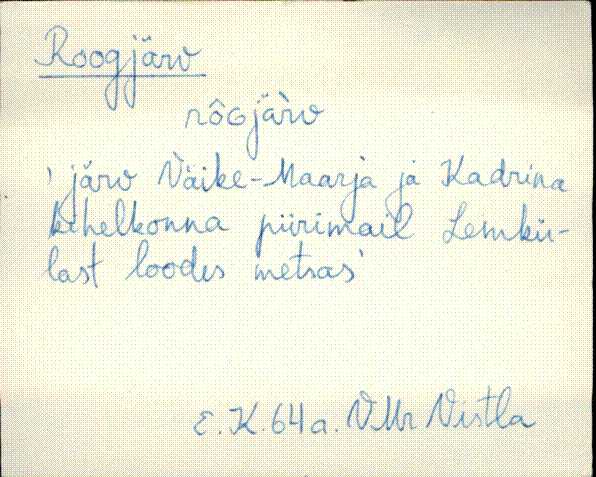 Roogjärv
rôojäŕv
'järv Väike-Maarja ja Kadrina
kihelkonna piirimail Lemkü-
last loodes metsas'
E.K. 64 a. VMr Vistla